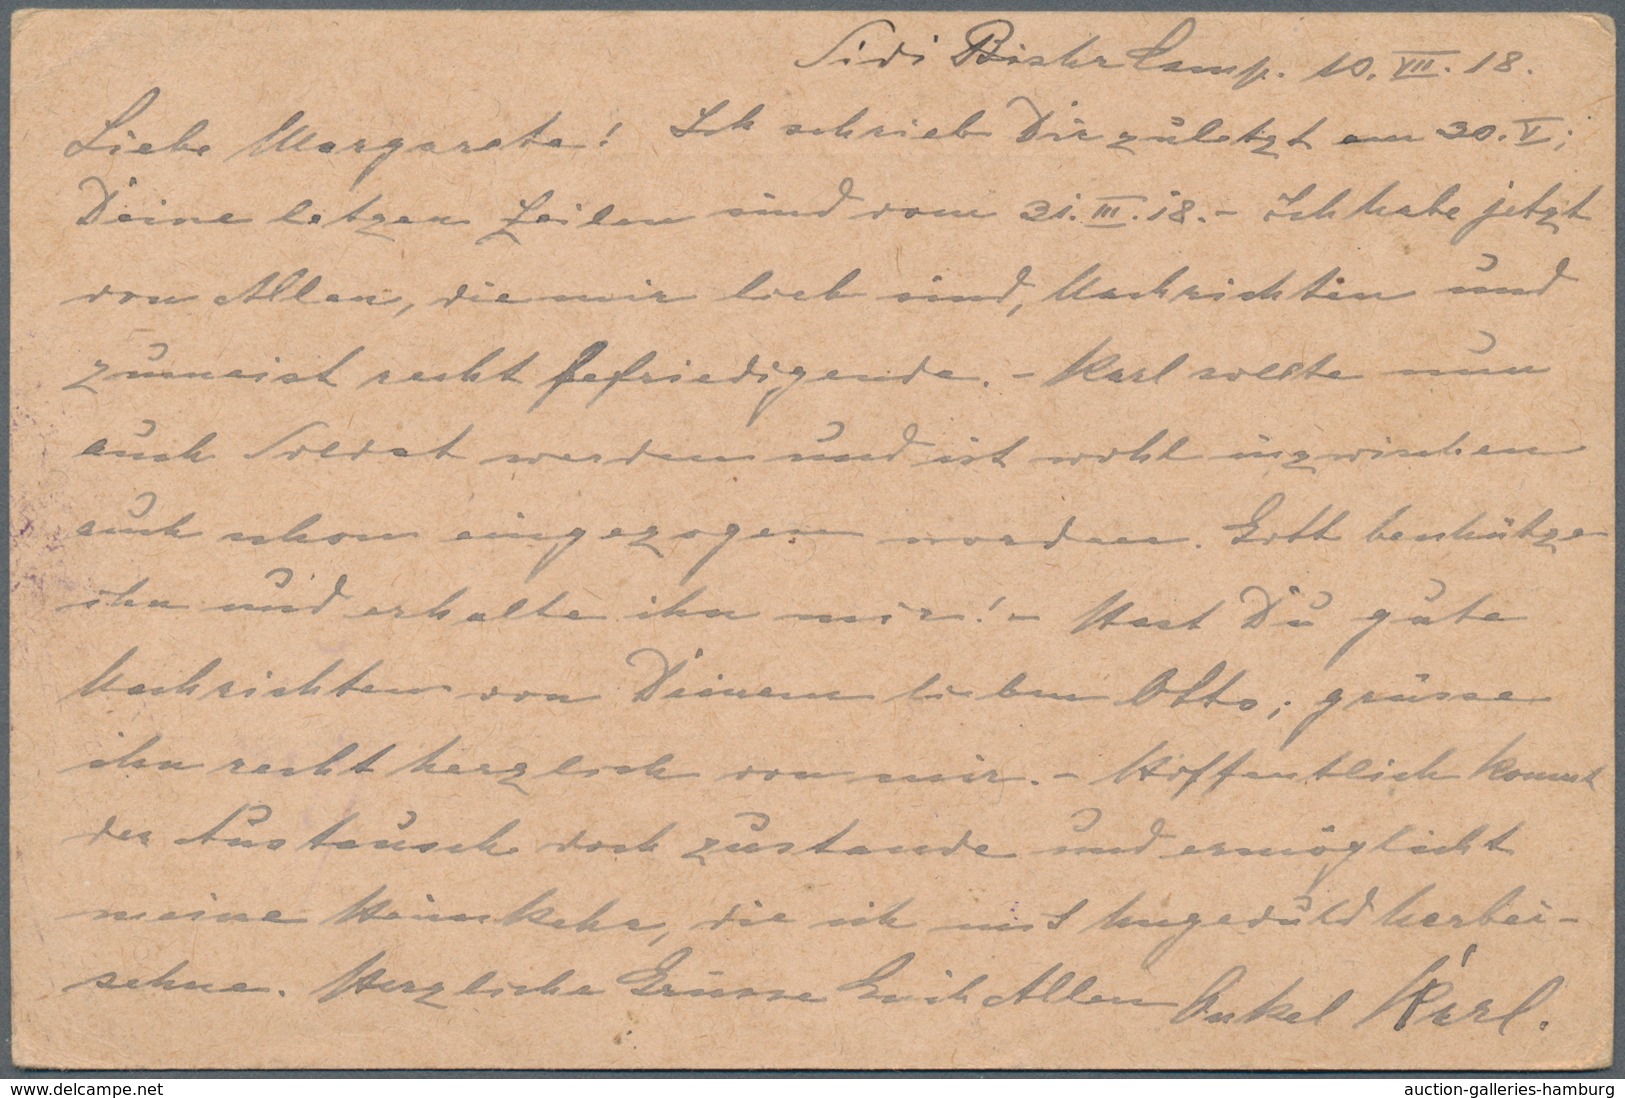 Sidi Bishr Camp. 10. VII. 18.
Liebe Margarete! Ich schrieb Dir zuletzt am 30. V;
Deine letzen Zeilen sind vom 31. III. 18. - Ich habe jetzt
von Allen, die mir lieb sind, Nachrichten und
zumeist recht befriedigende. - Karl sollte nun
auch Soldat werden und ist wohl inzwischen
auch schon eingezogen worden. Gott beschütze
ihn und erhalte ihn mir! - Hast Du gute
Nachrichten von Deinem lieben Otto; grüsse
ihn recht herzlich von mir. - Hoffentlich kommt
der Austausch doch zustande und ermöglicht
meine Heimkehr, die ich mit Ungeduld herbei-
sehne. Herzliche Grüsse Euch Allen Onkel Karl.
www.delcampe.net
auction-galleries-hamburg